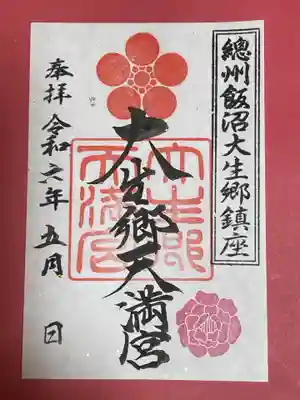 總州飯沼大生郷鎮座
大生郷天満宮
奉拝 令和六年 五月 日